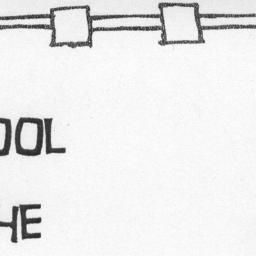 OOL
HE